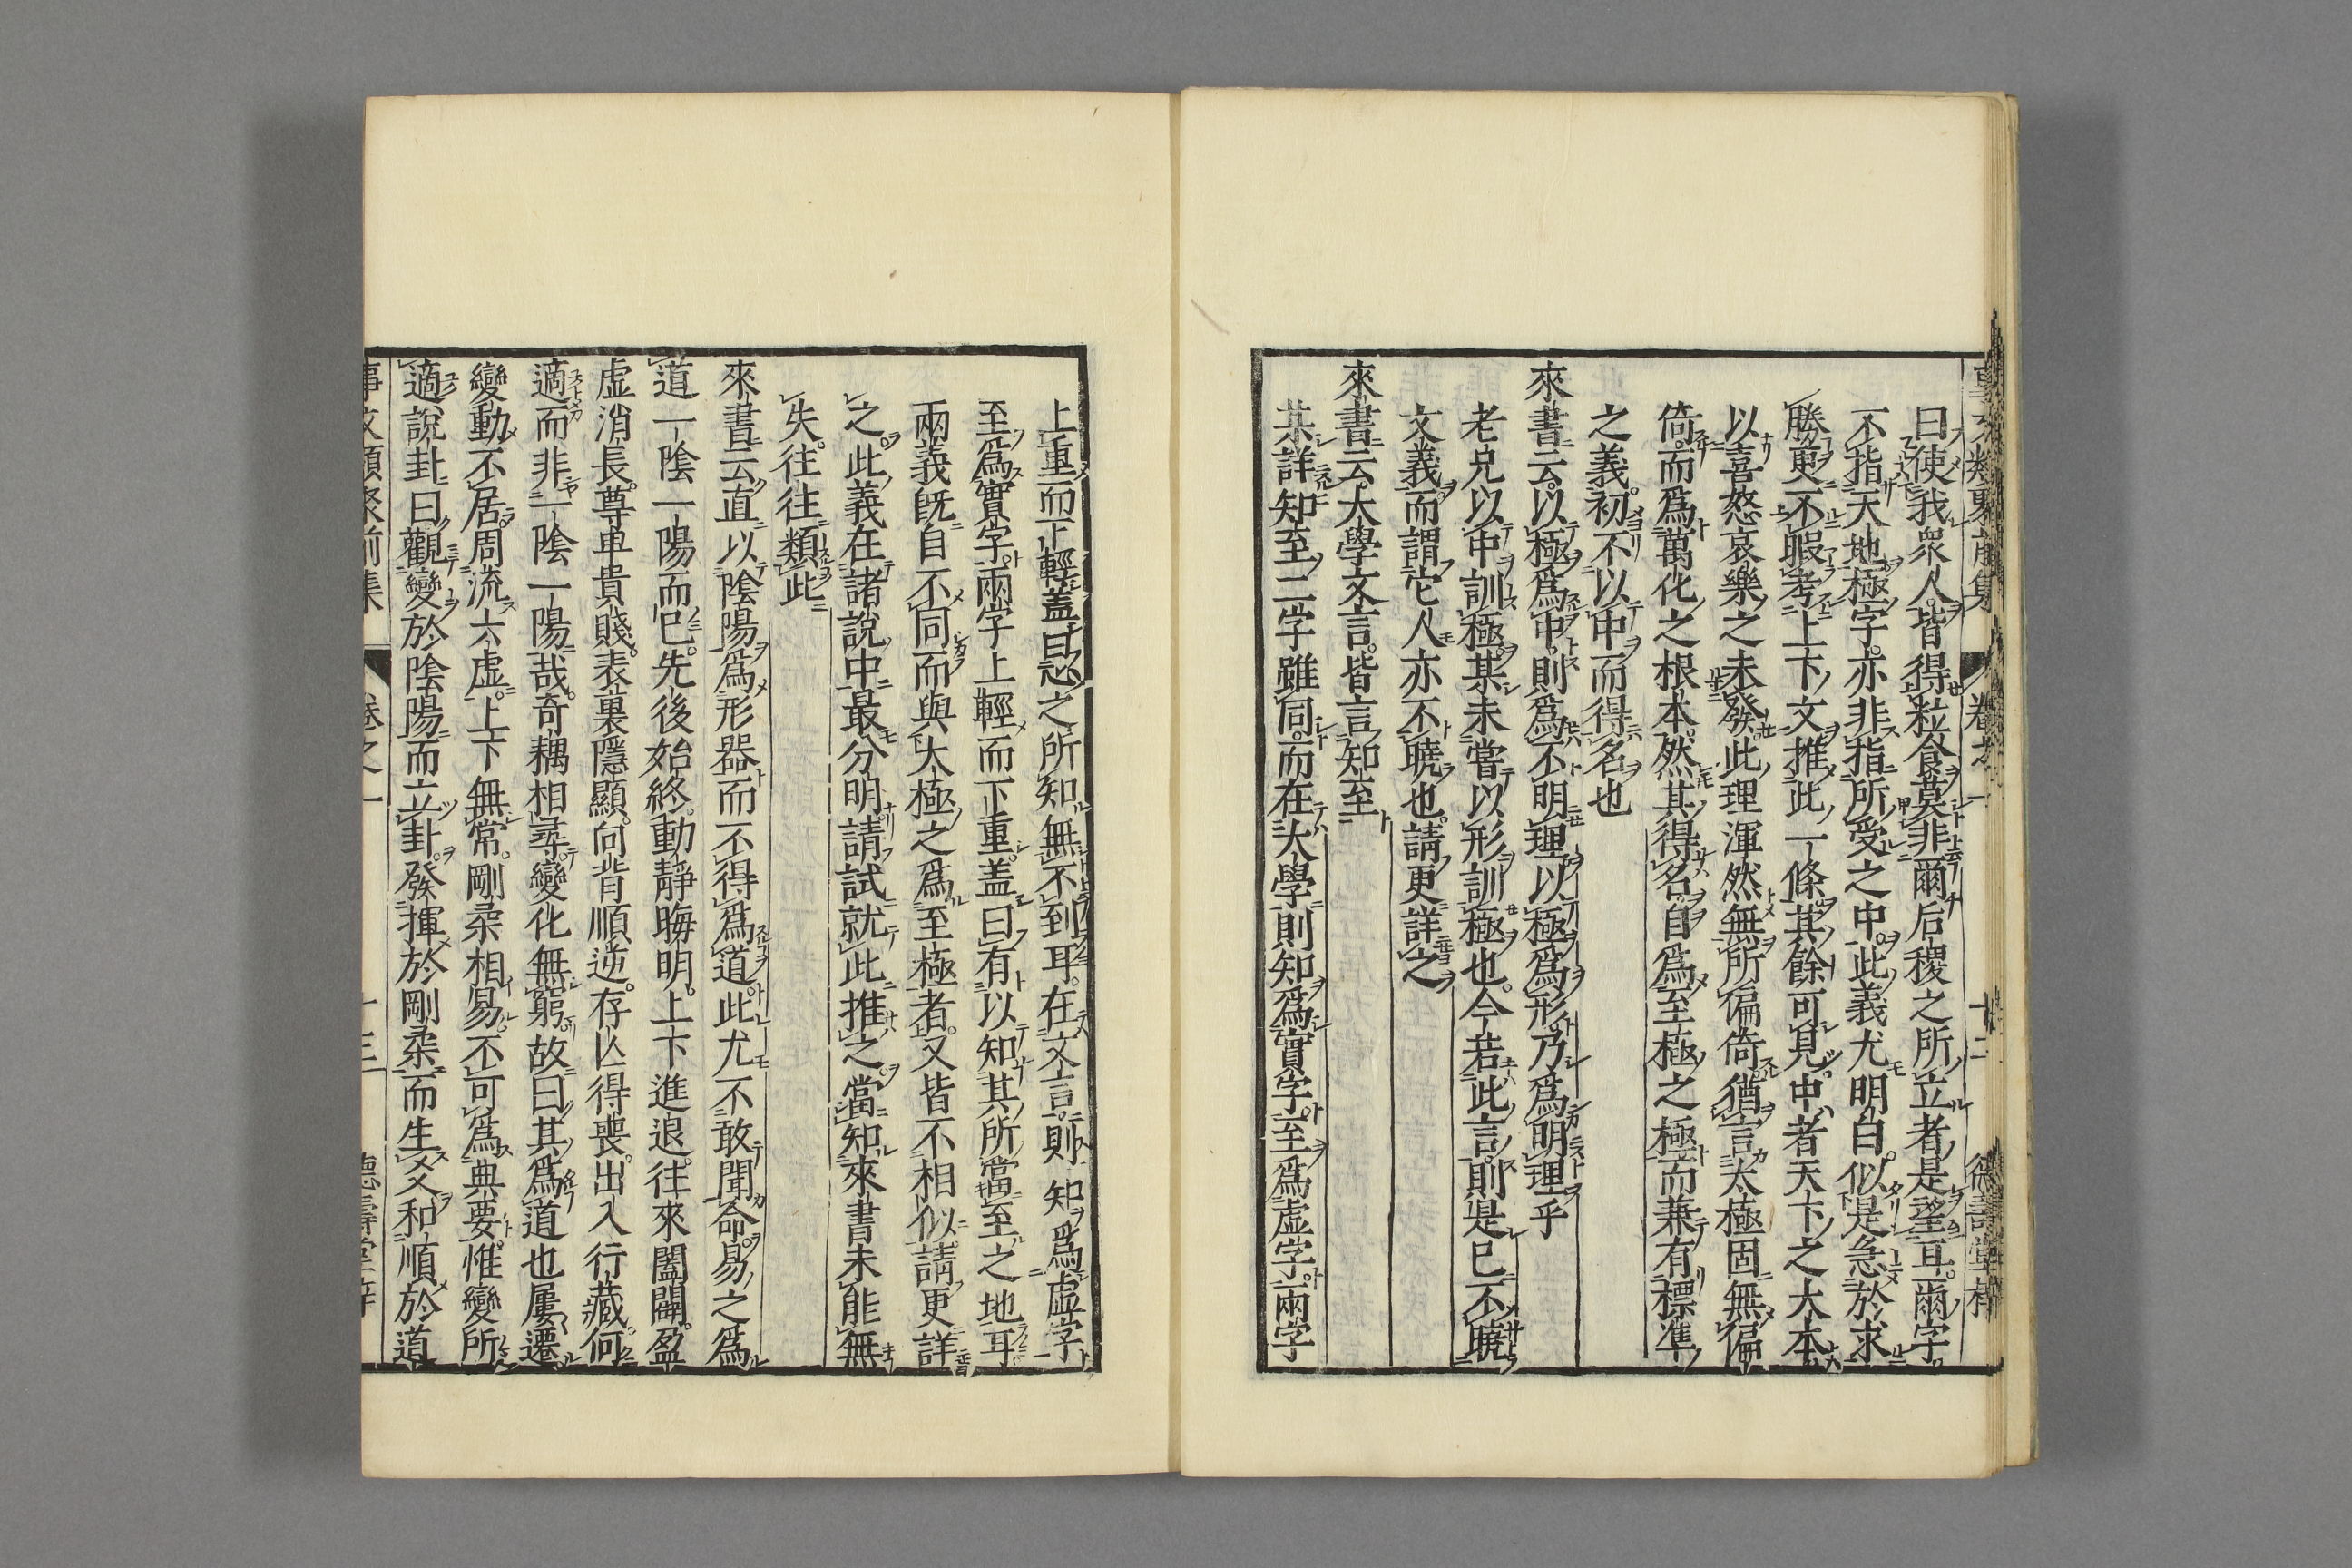 曰使我衆人皆得粒食莫非爾后稷之所立者是望耳爾字
不指天地極字亦非指所受之中此義尤明白似是急於求
勝更不暇考上下文推此一條其餘可見中者天下之大本
以喜怒哀樂之未發此理渾然無所偏倚猶言太極固無偏
倚而爲萬化之根本然其得名自爲至極之極而兼有標準
之義初不以中而得名也
來書云以極爲中則爲不明理以極爲形乃爲明理乎
老兄以中訓極某未嘗以形訓極也今若此言則是已不曉
文義而謂它人亦不曉也請更詳之
來書云大學文言皆言知至
某詳知至二字雖同而在大學則知爲實字至爲虛字兩字
上重而下輕蓋曰心之所知無不到耳在文言則知爲虛字
至爲實字兩字上輕而下重盖曰有以知其所當至之地耳
兩義既自不同而與大極之爲至極者又皆不相似請更詳
之此義在諸說中最分明請試就此推之當知來書未能無
失往往類此
來書云直以陰陽爲形器而不得爲道此尤不敢聞命易之爲
道一陰一陽而已先後始終動靜晦明上下進退往來闔闢盈
虛消長尊卑貴賤表裏隱顯向背順逆存亾得喪出入行藏何
適而非一陰一陽哉奇耦相尋變化無窮故曰其爲道也屢遷
變動不居周流六虛上下無常剛柔相易不可爲典要惟變所
適說卦曰觀變於陰陽而立卦發揮於剛柔而生爻和順於道
事文類聚前集 卷之一 十三